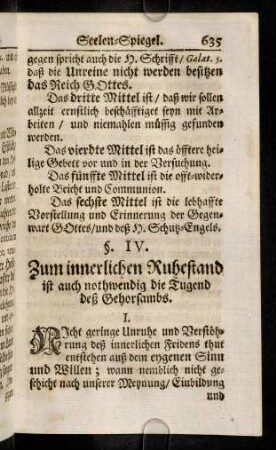 Seelen-Spiegel. 635
gegen spricht auch die H. Schrifft / Galat. 5.
daß die Unreine nicht werden besitzen
das Reich GOttes.
Das dritte Mittel ist / daß wir sollen
allzeit ernstlich beschäfftiget seyn mit Ar-
beiten / und niemahlen müssig gefunden
werden.
Das vierdte Mittel ist das öfftere hei-
lige Gebett vor und in der Versuchung.
Das fünffte Mittel ist die offt-wider-
holte Beicht und Communion.
Das sechste Mittel ist die lebhaffte
Vorstellung und Erinnerung der Gegen-
wart GOttes / und deß H. Schutz-Engels.
§. IV.
Zum innerlichen Ruhestand
ist auch nothwendig die Tugend
deß Gehorsambs.
I.
NIcht geringe Unruhe und Verstöh-
rung deß innerlichen Fridens thut
entstehen auß dem eygenen Sinn
und Willen; wann nemblich nicht ge-
schicht nach unserer Meynung / Einbildung
und